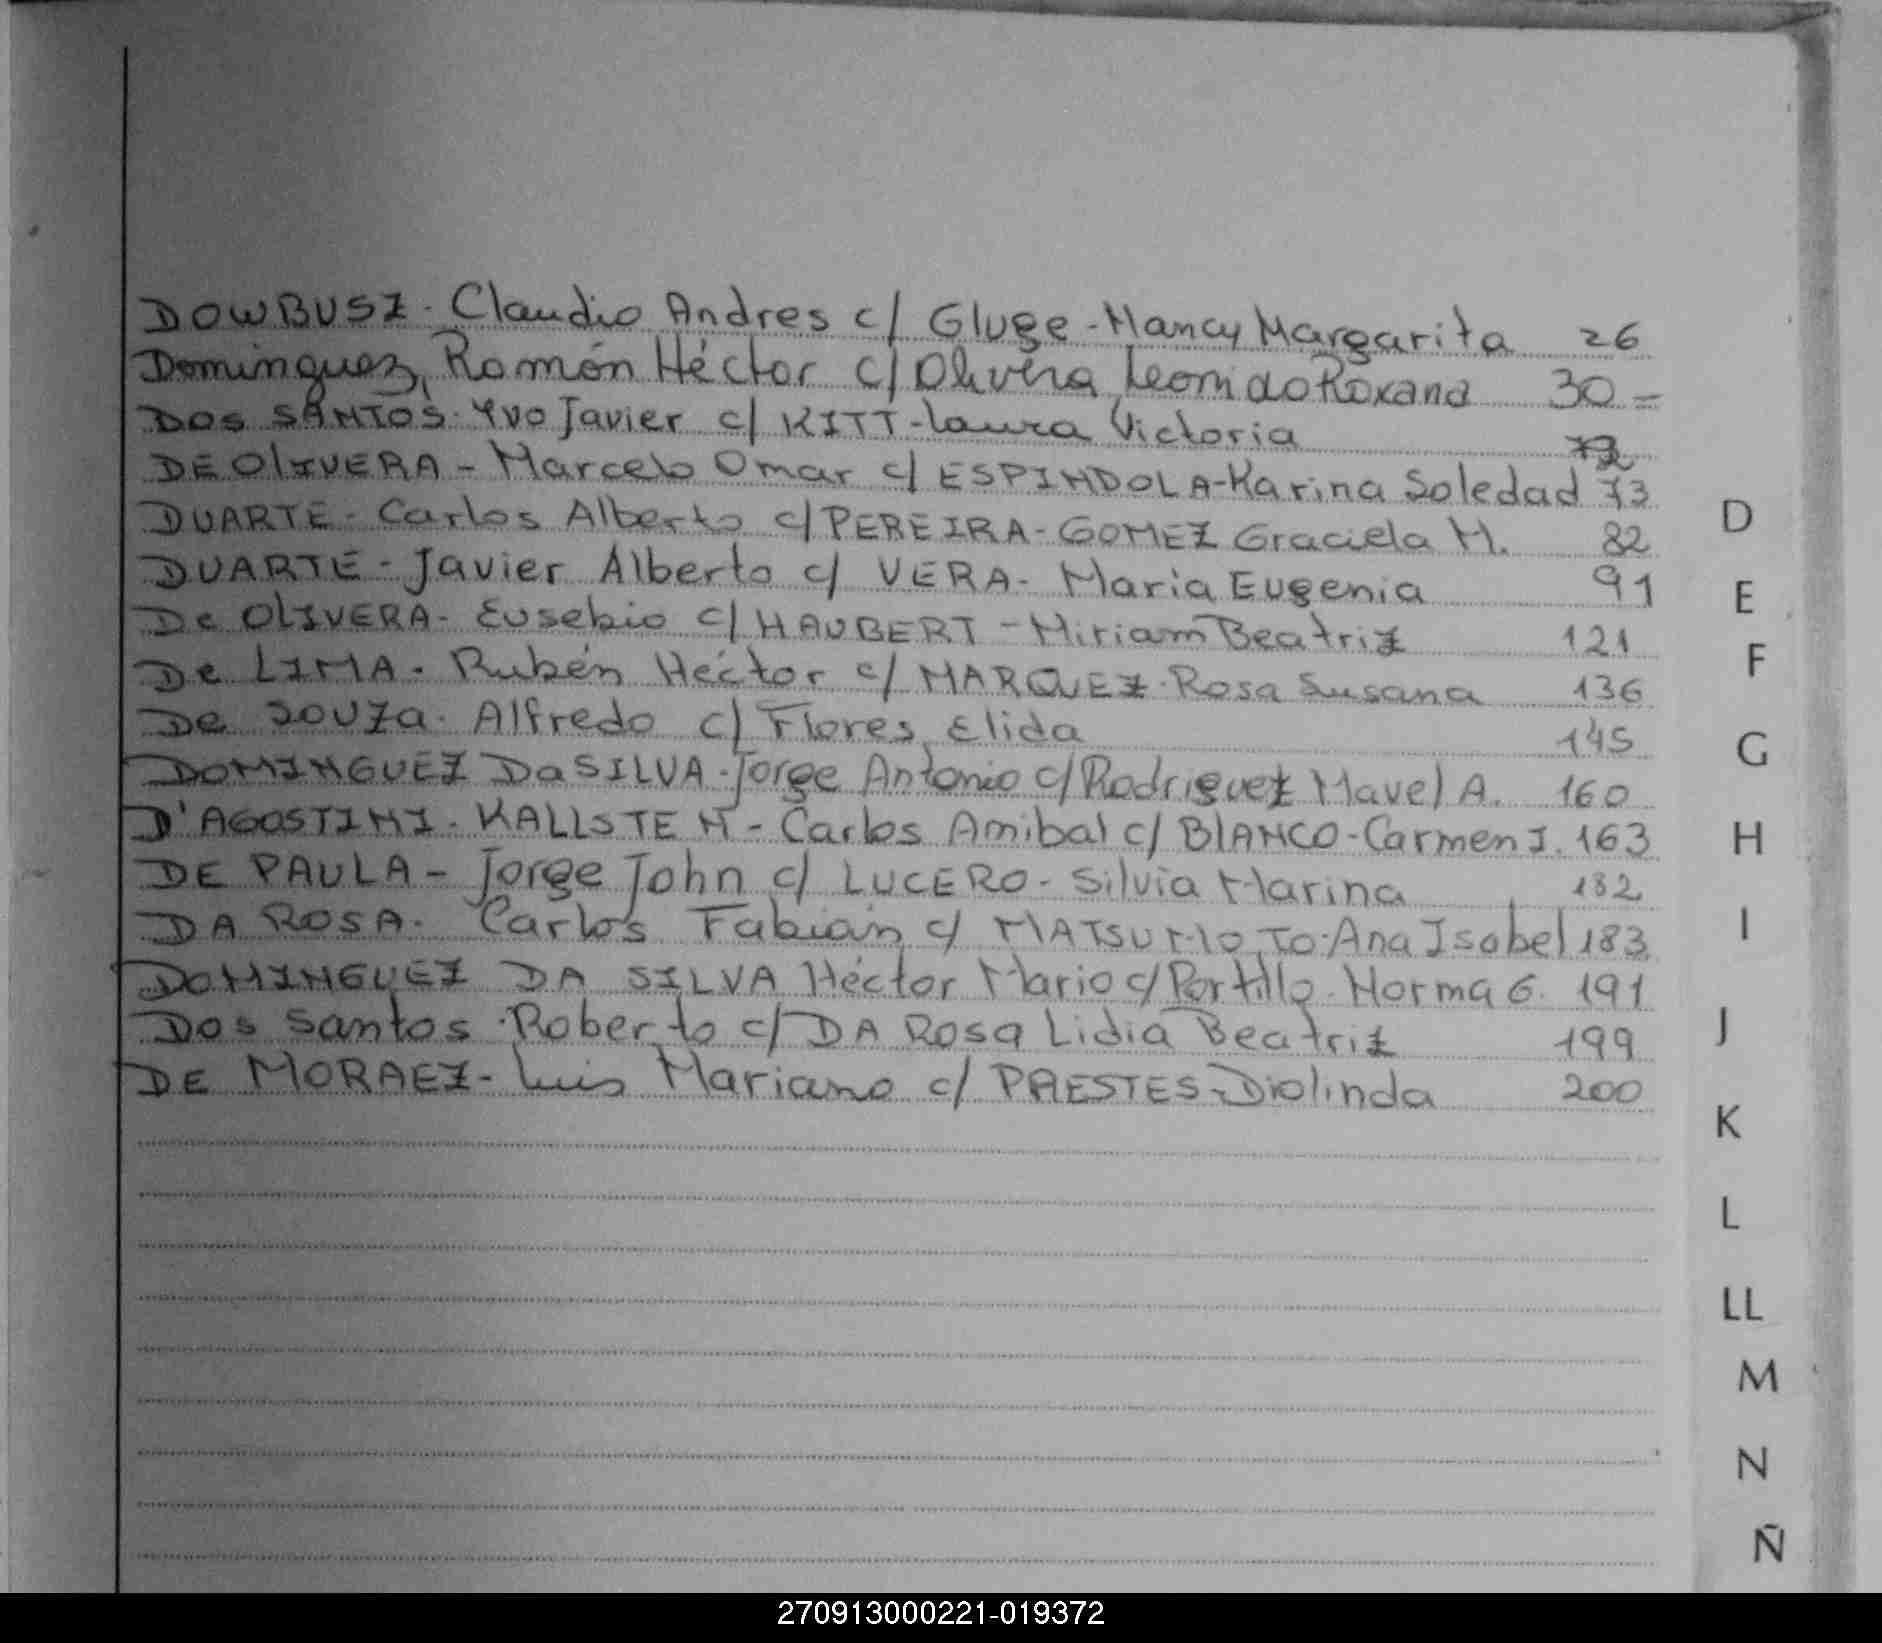 DOWBUSZ - Claudio Andres c/ Gluge - Nancy Margarita 26
Dominguez, Ramón Héctor c/ Olivera Leonida Roxana 30 -
DOS SANTOS - Yvo Javier c/ KITT - Laura Victoria 72
DE OLIVERA - Marcelo Omar c/ ESPINDOLA - Karina Soledad 73
DUARTE - Carlos Alberto c/ PEREIRA - GOMEZ Graciela M. 82
DUARTE - Javier Alberto c/ VERA - Maria Eugenia 91
De OLIVERA - Eusebio c/ HAUBERT - Miriam Beatriz 121
De LIMA - Rubén Héctor c/ MARQUEZ - Rosa Susana 136
De Souza - Alfredo c/ Flores, Elida 145
DOMINGUEZ Da SILVA - Jorge Antonio c/ Rodriguez Mavel A. 160
D'AGOSTINI - KALLSTEN - Carlos Anibal c/ BLANCO - Carmen I. 163
DE PAULA - Jorge John c/ LUCERO - Silvia Marina 182
DA ROSA - Carlos Fabián c/ MATSUMOTO - Ana Isabel 183
DOMINGUEZ DA SILVA Héctor Mario c/ Portillo - Norma G. 191
Dos Santos - Roberto c/ DA Rosa Lidia Beatriz 199
DE MORAEZ - Luis Mariano c/ PRESTES - Diolinda 200
D
E
F
G
H
I
J
K
L
LL
M
N
Ñ
270913000221-019372